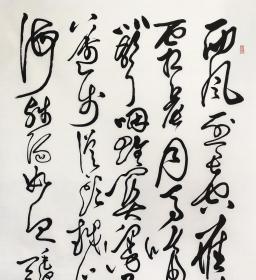 西风烈长空雁
霜晨月马蹄
声咽雄关漫
迈步从头越
海残阳如血